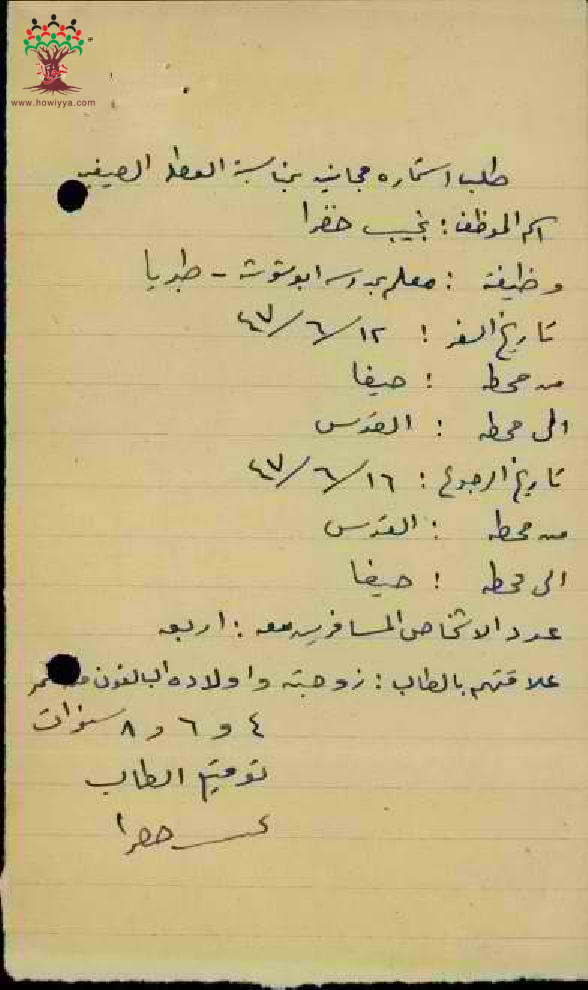 www.howiyya.com
طلب استماره مجانيه بمناسبة العطله الصيفيه
اسم الموظف : نجيب خضرا
وظيفته : معلم بمدرسه ابوشوشه - طبريا
تاريخ السفر : ١٢/٦/٤٧
من محطه : حيفا
الى محطه : القدس
تاريخ الرجوع : ١٦/٦/٤٧
من محطه : القدس
الى محطه : حيفا
عدد الاشخاص المسافرين معه : اربعه
علاقتهم بالطالب : زوجته واولاده البالغون من العمر
٤ و ٦ و ٨ سنوات
توقيع الطالب
خضرا